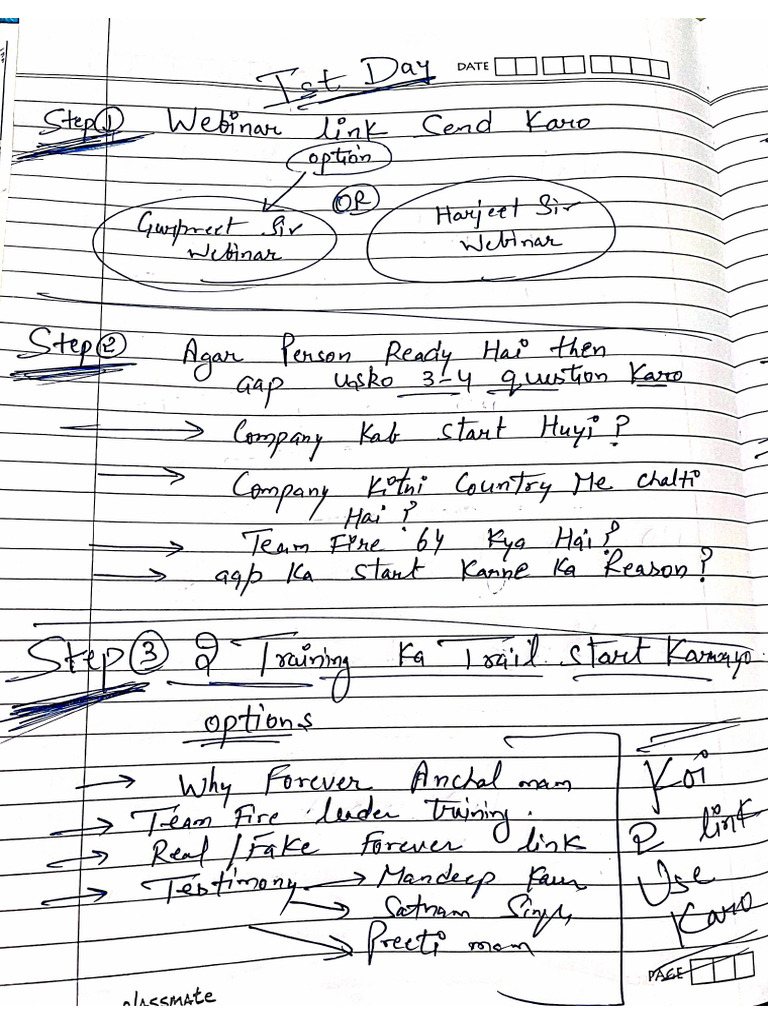 Ist Day DATE
Step 1 Webinar link Send Karo
option
OR
Gurpreet Sir
Webinar
Harjeet Sir
Webinar
Step 2 Agar Person Ready Hai then
aap usko 3-4 question Karo
Company Kab start Huyi?
Company Kitni Country Me chalti
Hai?
Team Fire 64 Kya Hai?
aap Ka start Karne Ka Reason?
Step 3 2 Training Ka Trail start Karwayo
options
Why Forever Anchal mam
Team Fire leader training.
Real/Fake Forever link
Testimony → Mandeep Kaur
Satnam Singh
Preeti mam
Koi
2 link
Use
Karo
PAGE
classmate